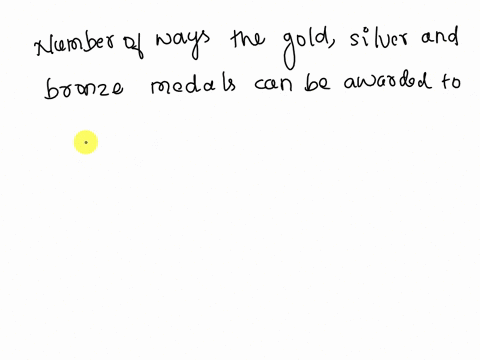 Number of ways the gold, silver and
bronze medals can be awarded to